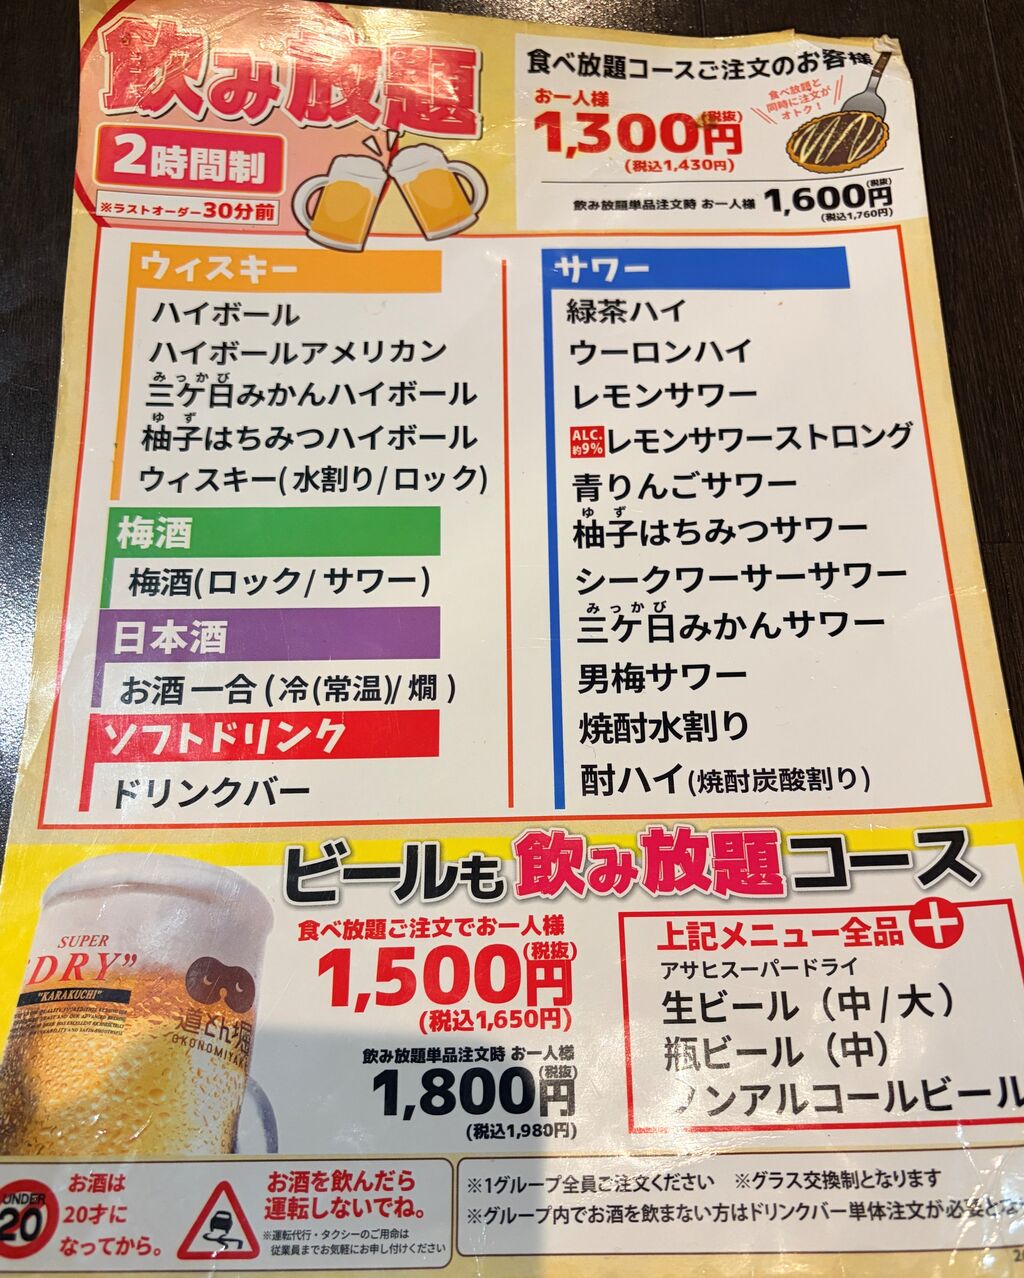 飲み放題
2時間制
※ラストオーダー30分前
食べ放題コースご注文のお客様
お一人様
1,300円(税抜)
(税込1,430円)
食べ放題と
同時に注文が
オトク!
飲み放題単品注文時 お一人様 1,600円(税抜)
(税込1,760円)
ウィスキー
ハイボール
ハイボールアメリカン
みっかび
三ケ日みかんハイボール
ゆず
柚子はちみつハイボール
ウィスキー(水割り/ロック)
梅酒
梅酒(ロック/サワー)
日本酒
お酒一合(冷(常温)/燗)
ソフトドリンク
ドリンクバー
サワー
緑茶ハイ
ウーロンハイ
レモンサワー
ALC.
約9%
レモンサワーストロング
青りんごサワー
ゆず
柚子はちみつサワー
シークワーサーサワー
みっかび
三ケ日みかんサワー
男梅サワー
焼酎水割り
酎ハイ(焼酎炭酸割り)
ビールも飲み放題コース
食べ放題ご注文でお一人様
1,500円(税抜)
(税込1,650円)
飲み放題単品注文時 お一人様
1,800円(税抜)
(税込1,980円)
上記メニュー全品+
アサヒスーパードライ
生ビール(中/大)
瓶ビール(中)
ノンアルコールビール
SUPER
"DRY"
"KARAKUCHI"
道とん堀
OKONOMIYAKI
UNDER
20
お酒は
20才に
なってから。
お酒を飲んだら
運転しないでね。
※運転代行・タクシーのご用命は
従業員までお気軽にお申し付けください
※1グループ全員ご注文ください ※グラス交換制となります
※グループ内でお酒を飲まない方はドリンクバー単体注文が必要とな